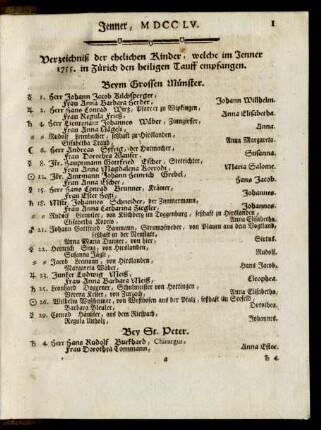 Jenner, MDCCLV. 1
Verzeichniß der ehelichen Kinder, welche im Jenner
1755. in Zürich den heiligen Tauff empfangen.
Beym Grossen Münster.
1. Herr Johann Jacob Bilchsperger,
Frau Anna Barbara Herder, Johann Willhelm.
2. Herr Hans Conrad Wirz, Pfarrer zu Wipkingen,
Frau Regula Frieß, Anna Elisabetha.
4. Herr Lieutenant Johannes Wäber, Zinngiesser,
Frau Anna Nägeli, Anna.
Rudolf Leembacher, seßhaft zu Hirslanden,
Elisabetha Traub, Anna Margareta.
Herr Andreas Syfrig, der Hutmacher,
Frau Dorothea Wauser, Susanna.
8. Jkr. Hauptmann Gottfried Escher, Gerichtere,
Frau Anna Magdalena Korrodi, Maria Salome.
12. Jkr. Amtmann Johann Heinrich Grebel,
Frau Anna Escher, Hans Jacob.
15. Herr Hans Conrad Brunner, Krämer,
Frau Ester Hotz, Johannes.
18. Mstr. Johannes Schneider, der Zimmermann,
Frau Anna Catharina Ziegler, Johannes.
Rudolf Grendler, von Kilchberg im Toggenburg, seßhaft zu Hirslanden,
Elisabetha Koreis, Anna Elisabetha.
21. Johann Gottfried Baumann, Strumpfweber, von Plauen aus dem Vogtland,
seßhaft in der Neustatt,
Anna Maria Danner, von hier, Sixtus.
22. Heinrich Sing, von Hirslanden,
Susanna Jäggli, Rudolf.
Jacob Lemann, von Hirslanden,
Margareta Wäber, Hans Jacob,
23. Junker Ludwig Meiß,
Frau Anna Barbara Meiß, Cleophea.
25. Leonhard Doggener, Schulmeister von Hottingen,
Verena Keller, von Zurzach, Anna Elisabetha.
26. Wilhelm Weißbrunner, von Westhofen aus der Pfalz, seßhaft im Seefeld,
Barbara Bleuler, Dorothea.
29. Conrad Häusler, aus dem Riesbach,
Regula Unholz, Johannes.
Bey St. Peter.
4. Herr Hans Rudolf Burkhard, Chirurgus,
Frau Dorothea Tommann, Anna Ester.
a
4.